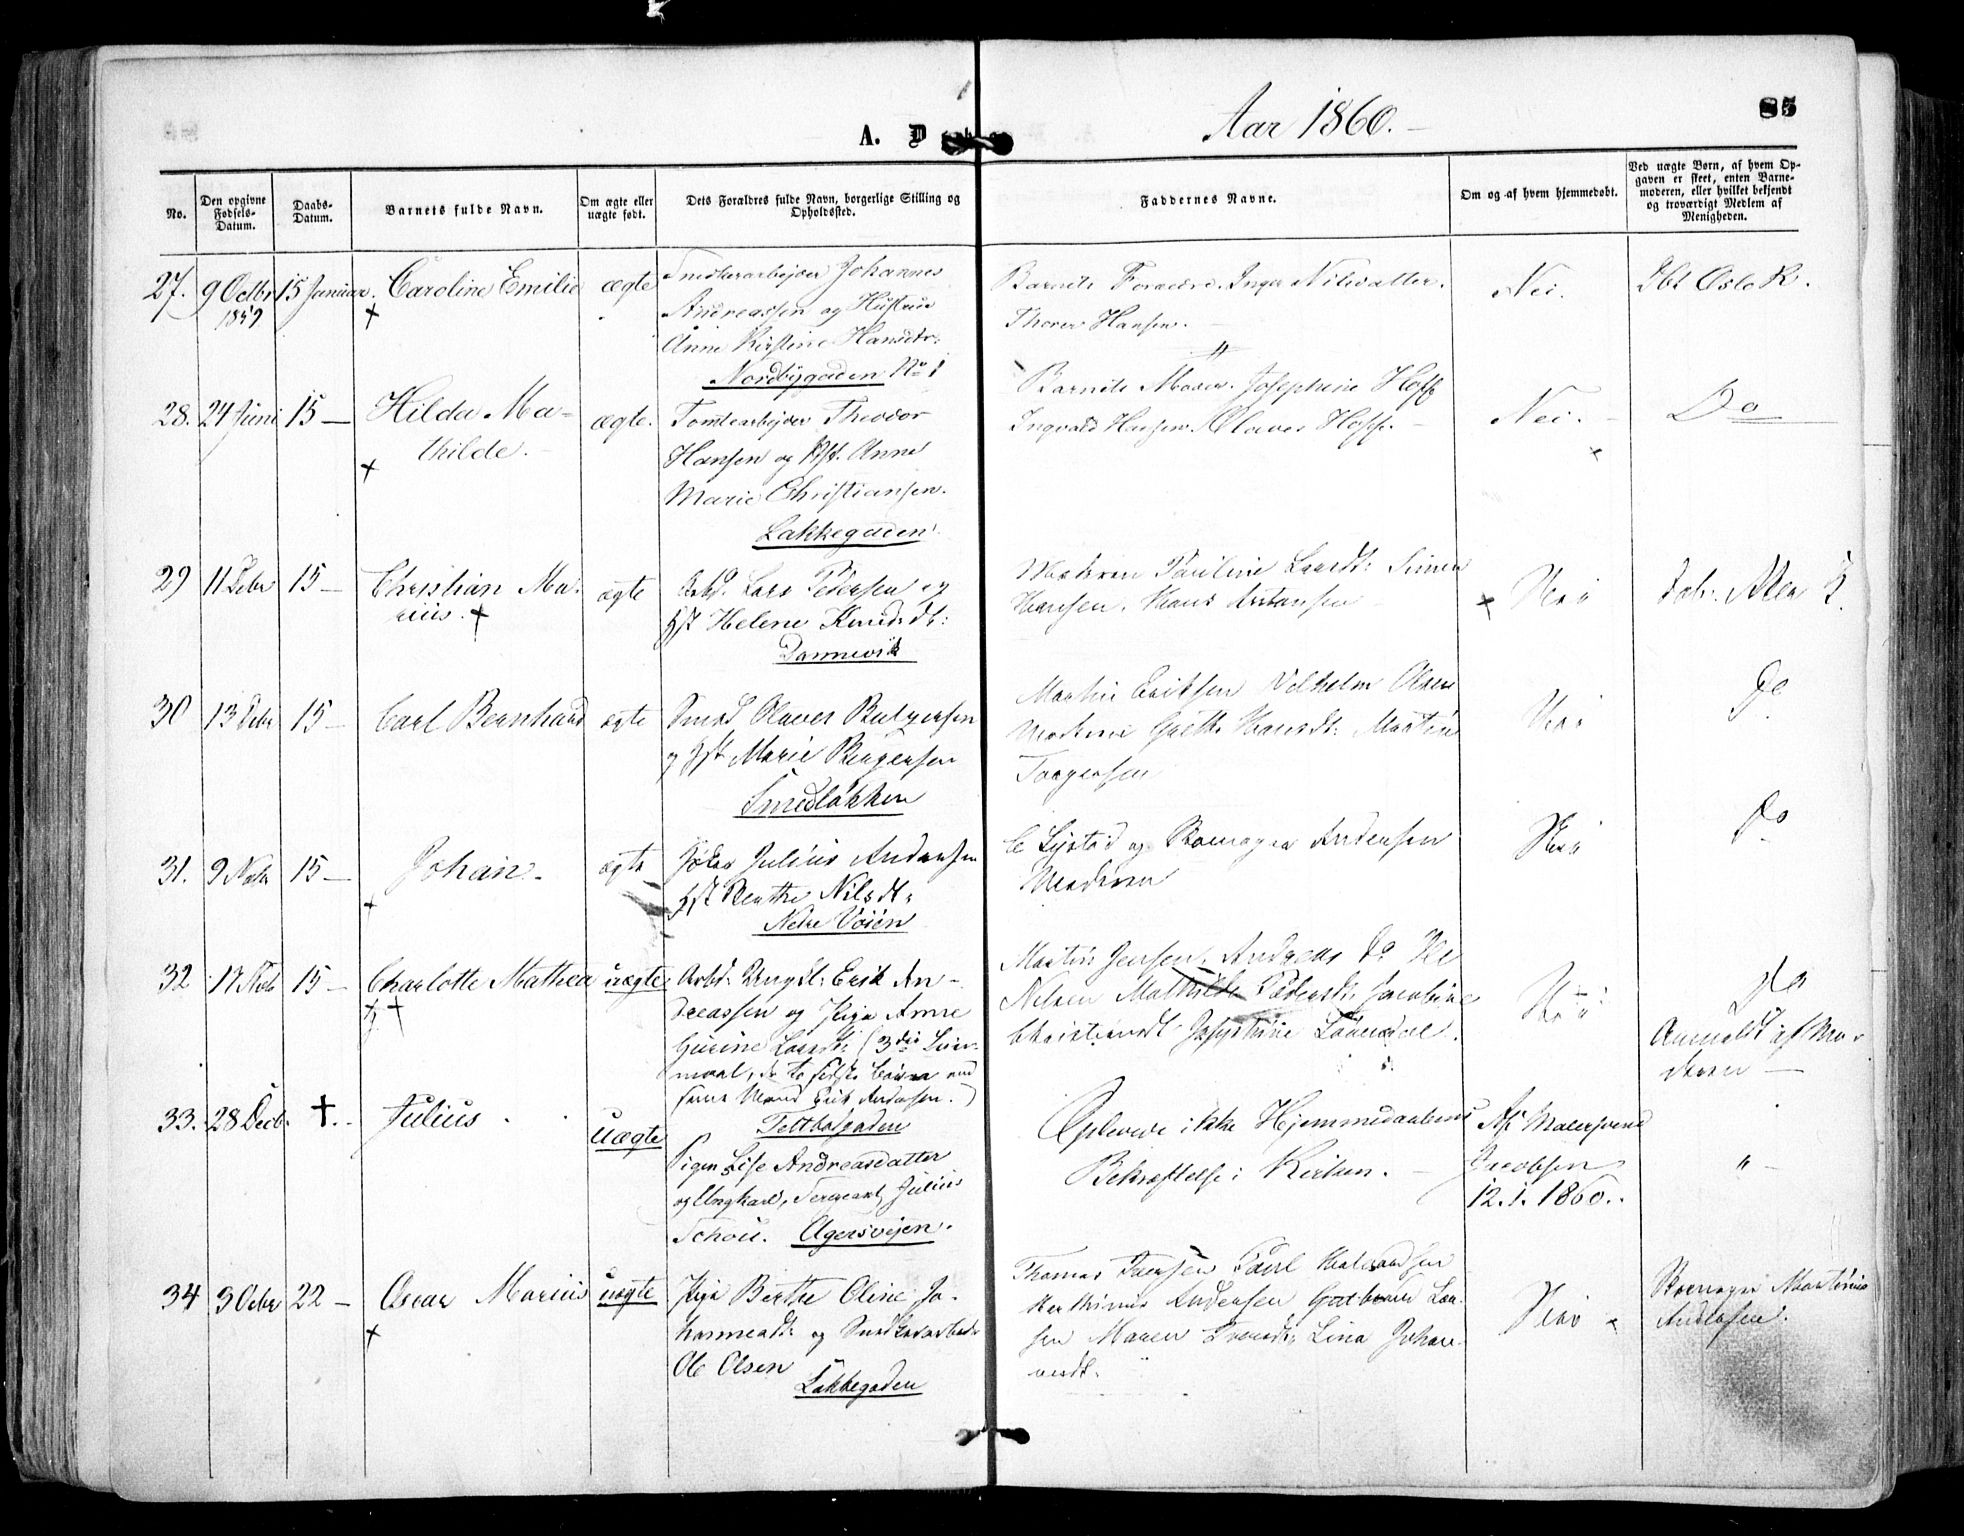 Aar 1860.
85
A. D
No.
Den opgivne Fødsels-Datum.
Daabs-Datum.
Barnets fulde Navn.
Om ægte eller uægte født.
Dets Forældres fulde Navn, borgerlige Stilling og Opholdssted.
Faddernes Navne.
Om og af hvem hjemmedøbt.
Ved uægte Børn, af hvem Opgaven er skeet, enten Barnemoderen, eller hvilket bekjendt og troværdigt Medlem af Menigheden.
27. 9 Octbr 15 Januar. Caroline Emilie ægte
1859
Snedkerarbejder Johannes
Andreassen og Hustrue
Anne Kirstine Hansdtr.
Nordbygaden No 1
Barnets Forældre. Inger Nilsdatter.
Thorer Hansen.
Nei.
Oslo K.
28. 24 Juni 15 — Hilda Ma-
thilde.
ægte.
Tomtearbejder Theodor
Hansen og Hst. Anne
Marie Christiansen.
Lakkegaden.
Barnets Moder. Josephine Hoff
Ingvald Hansen. Olaves Hoff.
Nei.
Do
29 11 Debr 15 — Christian Ma-
rius.
ægte
Arbd. Lars Pedersen og
Hst Helene Knudsdt:
Dannevik
Moderen Pauline Larsdt: Simen
Hansen. Hans
Nei
30 13 Debr 15 — Carl Bernhard ægte
Smed Olaves
og Hst Marie
Smedløkken
Martin Eriksen Vilhelm Olsen
Moderen Grethe Hansdt: Martin
Torgersen
Nei
Do
31. 9 15 — Johan ægte
Julius Andersen
Hst Berthe Nilsdt:
Nedre Vöien
C Lystad og Skomager Andersen
Moderen
Nei
Do
32 17 15 — Charlotte Mathea uægte
Arbd. Ungk: Erik An-
dreassen og Pige Anne
Gurine Larsdt: (3die Leier-
maal, de to første Børn med
samme Mand Erik Andersen.)
Tøftbygaden
Martin Jensen, Andreas Do
Nilsen Mathilde Pedersdt: Jacobine
Christiansdt: Josephine
Nei
Do
Anmeldt af Mo-
deren —
33. 28 Decb. †. Julius uægte
Pigen Lise Andreasdatter
og Ungkarl, Sergeant, Julius
Schou. Agersvejen.
Oplevede ikke Hjemmedaabens
Bekræftelse i Kirken. —
Af Malersvend
Jacobsen
12. 1. 1860.
" —
34 3 Octbr 22 — Oscar Marius uægte
Pige Berthe Oline Jo-
hannesdt: og Snedkerarbeider
Ole Olsen
Lakkegaden
Thomas
Andersen
Maren Lina Johan-
nesdt.
Nei
Skomager Martinius
Andersen.